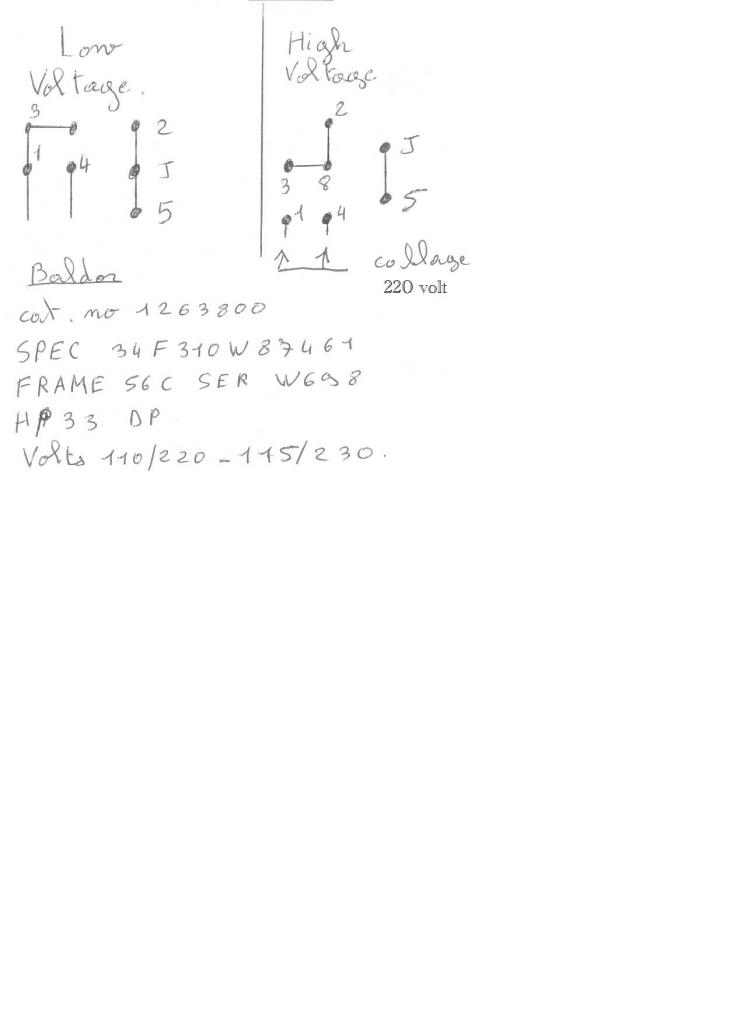 Low
Voltage.
3
1
4
2
J
5
High
Voltage
2
3 8
1 4
J
5
collage
220 volt
Baldor
cat. no 1263800
SPEC 34F310W87461
FRAME 56C SER W698
HP 33 DP
Volts 110/220 - 115/230.